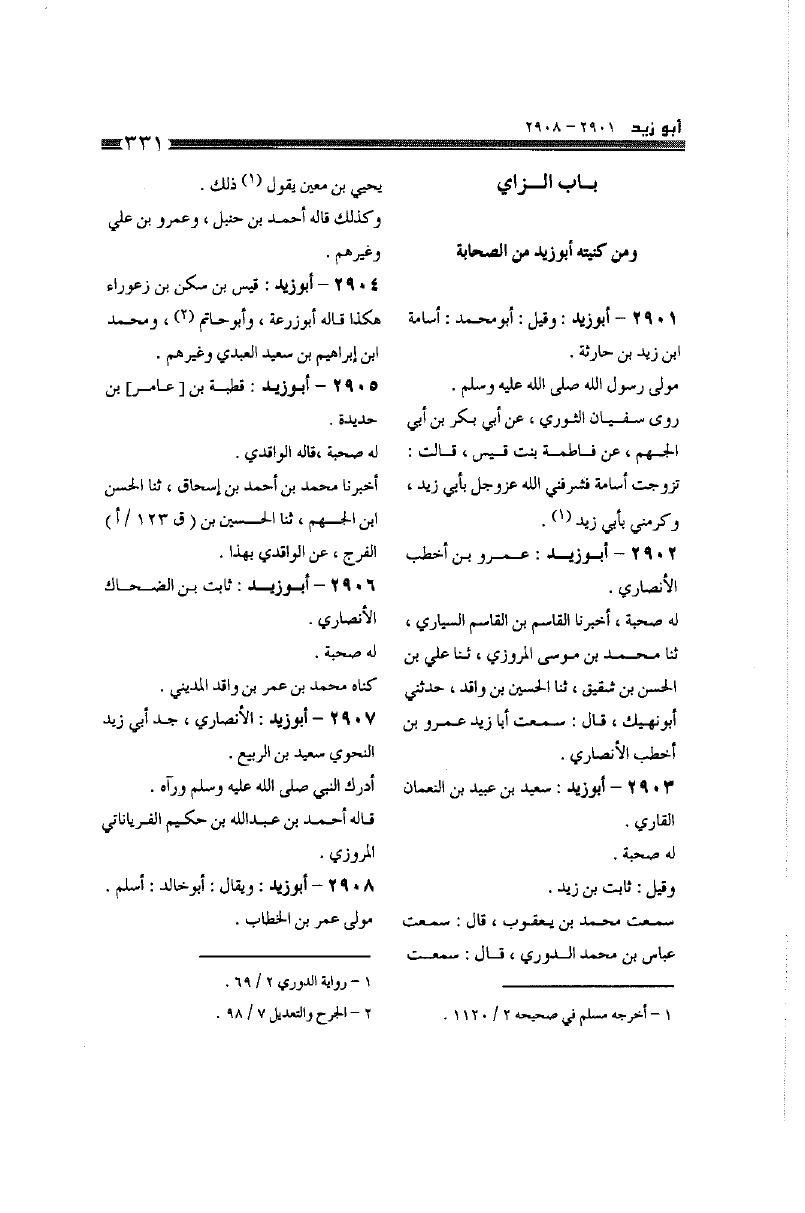 أبو زيد ٢٩٠١ – ٢٩٠٨
٣٣١
بـاب الـــزاي
ومن كنيته أبوزيد من الصحابة
٢٩٠١ – أبوزيد : وقيل : أبو محمد : أسامة
ابن زيد بن حارثة .
مولى رسول الله صلى الله عليه وسلم .
روى سفيان الثوري ، عن أبي بكر بن أبي
الجهم ، عن فاطمة بنت قيس ، قالت :
تزوجت أسامة فشرفني الله عزوجل بأبي زيد ،
وكرمني بأبي زيد (١) .
٢٩٠٢ – أبوزيد : عمرو بن أخطب
الأنصاري .
له صحبة ، أخبرنا القاسم بن القاسم السياري ،
ثنا محمد بن موسى المروزي ، ثنا علي بن
الحسن بن شقيق ، ثنا الحسين بن واقد ، حدثني
أبونهيك ، قال : سمعت أبا زيد عمرو بن
أخطب الأنصاري .
٢٩٠٣ – أبوزيد : سعيد بن عبيد بن النعمان
القاري .
له صحبة .
وقيل : ثابت بن زيد .
سمعت محمد بن يعقوب ، قال : سمعت
عباس بن محمد الدوري ، قال : سمعت
١ – أخرجه مسلم في صحيحه ٢ / ١١٢٠ .
يحيي بن معين يقول (١) ذلك .
وكذلك قاله أحمد بن حنبل ، وعمرو بن علي
وغيرهم .
٢٩٠٤ – أبوزيد : قيس بن سكن بن زعوراء
هكذا قاله أبوزرعة ، وأبوحاتم (٢) ، ومحمد
ابن إبراهيم بن سعيد العبدي وغيرهم .
٢٩٠٥ – أبوزيد : قطبة بن [ عامر] بن
حديدة .
له صحبة ،قاله الواقدي .
أخبرنا محمد بن أحمد بن إسحاق ، ثنا الحسن
ابن الجهم ، ثنا الحسين بن ( ق ١٢٣ / أ )
الفرج ، عن الواقدي بهذا .
٢٩٠٦ – أبوزيد : ثابت بن الضحاك
الأنصاري .
له صحبة .
كناه محمد بن عمر بن واقد المديني .
٢٩٠٧ – أبوزيد : الأنصاري ، جد أبي زيد
النحوي سعيد بن الربيع .
أدرك النبي صلى الله عليه وسلم ورآه .
قاله أحمد بن عبدالله بن حكيم الفرياناني
المروزي .
٢٩٠٨ – أبوزيد : ويقال : أبوخالد : أسلم .
مولى عمر بن الخطاب .
١ – رواية الدوري ٢ / ٦٩ .
٢ – الجرح والتعديل ٧ / ٩٨ .